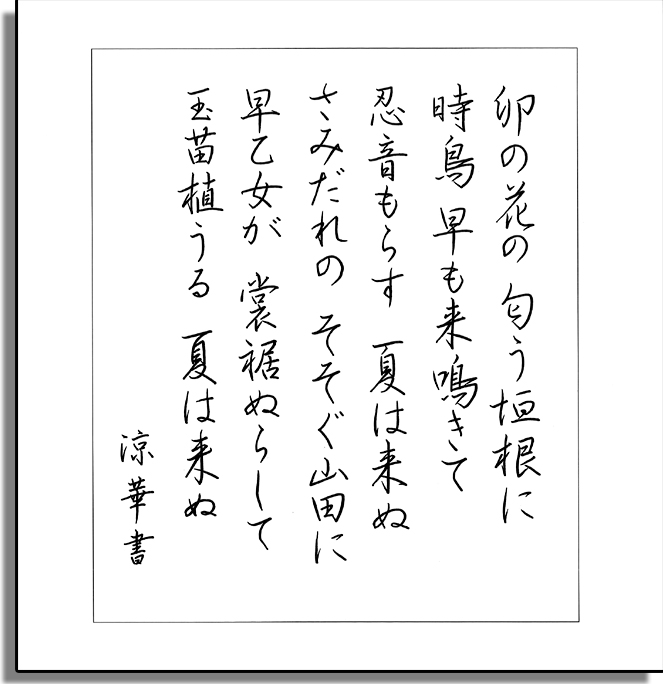 卯の花の 匂う垣根に
時鳥 早も来鳴きて
忍音もらす 夏は来ぬ
さみだれの そそぐ山田に
早乙女が 裳裾ぬらして
玉苗植うる 夏は来ぬ
涼華書